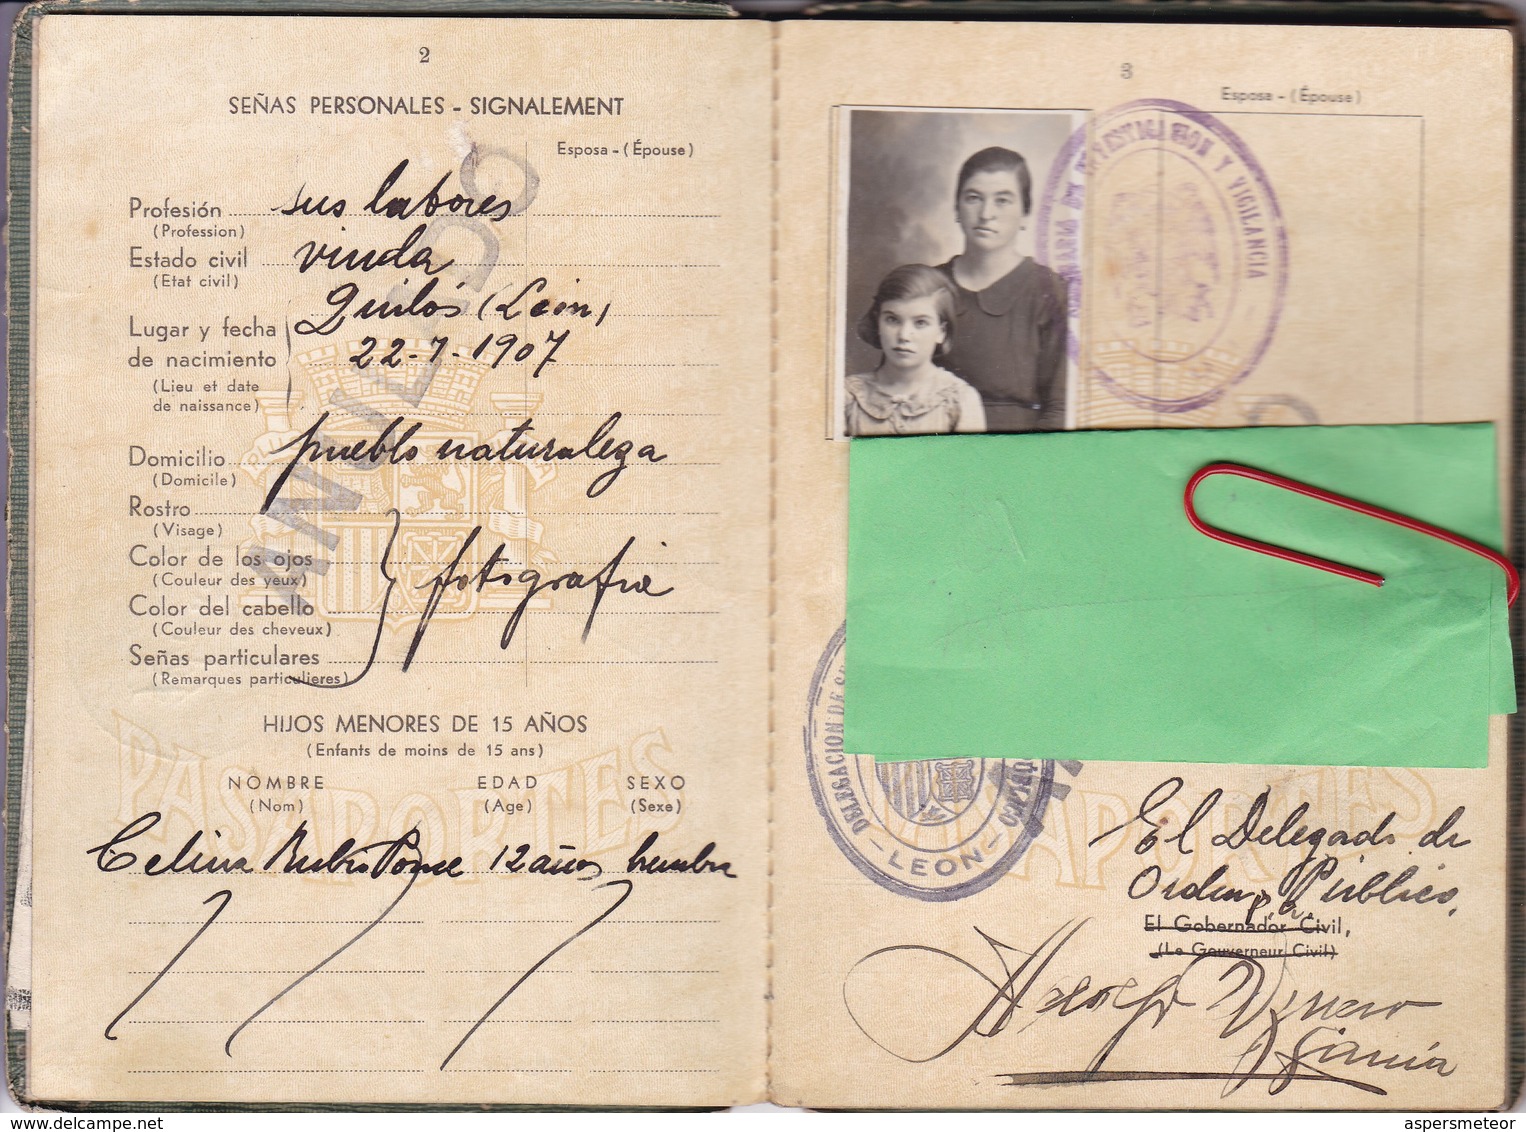 2
SEÑAS PERSONALES - SIGNALEMENT
Esposa - (Épouse)
Profesión sus labores
(Profession)
Estado civil viuda
(Etat civil)
Lugar y fecha Quilós (León)
de nacimiento 22-7-1907
(Lieu et date
de naissance)
Domicilio pueblo naturaleza
(Domicile)
Rostro
(Visage)
Color de los ojos
(Couleur des yeux)
fotografia
Color del cabello
(Couleur des cheveux)
Señas particulares
(Remarques particulieres)
ANULADO
HIJOS MENORES DE 15 AÑOS
(Enfants de moins de 15 ans)
NOMBRE EDAD SEXO
(Nom) (Age) (Sexe)
Celina Rubio Ponce 12 años hembra
PASAPORTES
3
Esposa - (Épouse)
INVESTIGACION Y VIGILANCIA
DELEGACION DE
- LEON -
El Delegado de
Orden Público,
P.A.
El Gobernador Civil,
(Le Gouverneur Civil)
García
delcampe.net
aspersmeteor